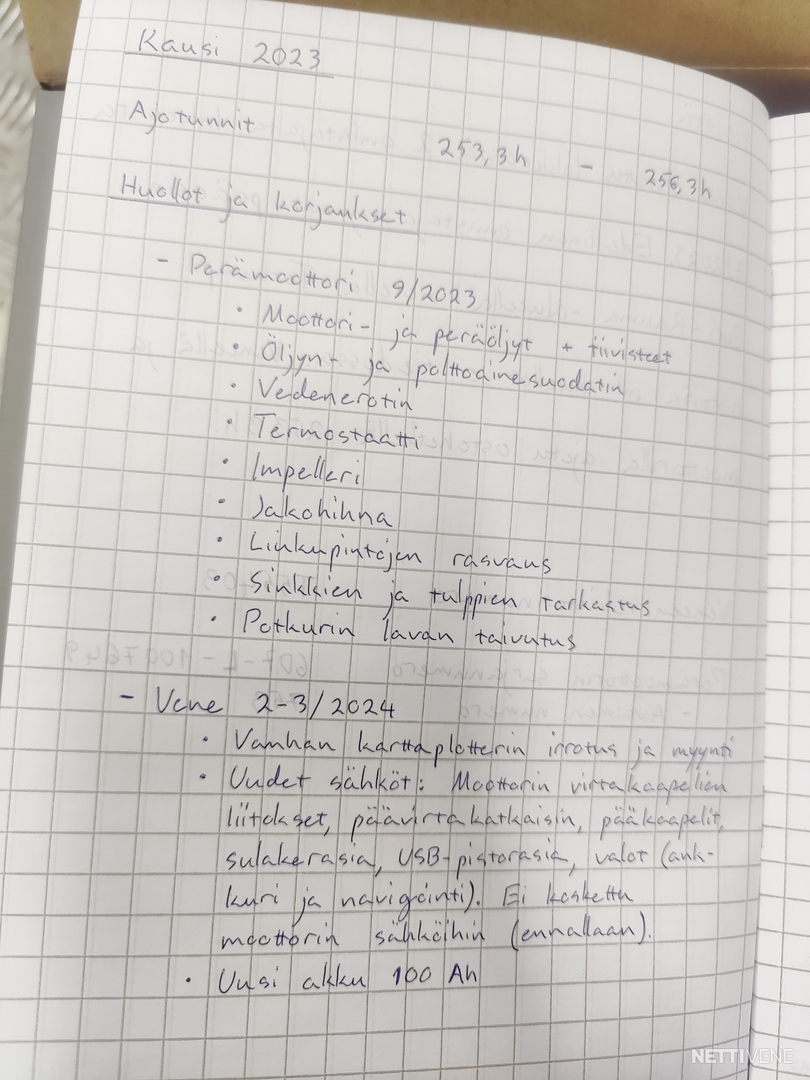 Kausi 2023
Ajotunnit 253,3h - 256,3h
Huollot ja korjaukset
- Perämoottori 9/2023
• Moottori- ja peräöljyt + tiivisteet
• Öljyn- ja polttoainesuodatin
• Vedenerotin
• Termostaatti
• Impelleri
• Jakohihna
• Liukupintojen rasvaus
• Sinkkien ja tulppien tarkastus
• Potkurin lavan taivutus
- Vene 2-3/2024
• Vanhan karttaplotterin irrotus ja myynti
• Uudet sähköt: Moottorin virtakaapelien
liitokset, päävirtakatkaisin, pääkaapelit,
sulakerasia, USB-pistorasia, valot (ank-
kuri ja navigointi). Ei koskettu
moottorin sähköihin (ennallaan).
• Uusi akku 100 Ah
NETTIVENE